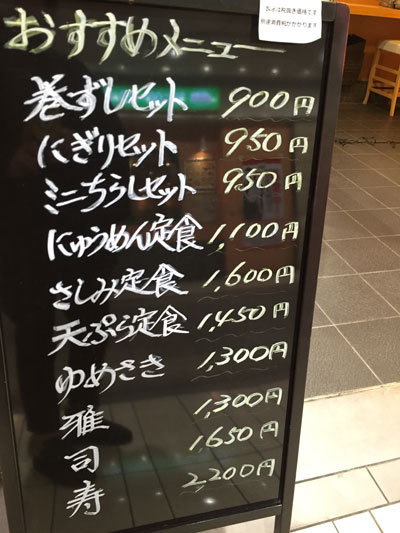 おすすめメニュー
表示は税抜き価格です
別途消費税がかかります
巻ずしセット 900円
にぎりセット 950円
ミニちらしセット 950円
にゅうめん定食 1,100円
さしみ定食 1,600円
天ぷら定食 1,450円
ゆめさき 1,300円
雅 1,300円
司 1,650円
寿 2,200円